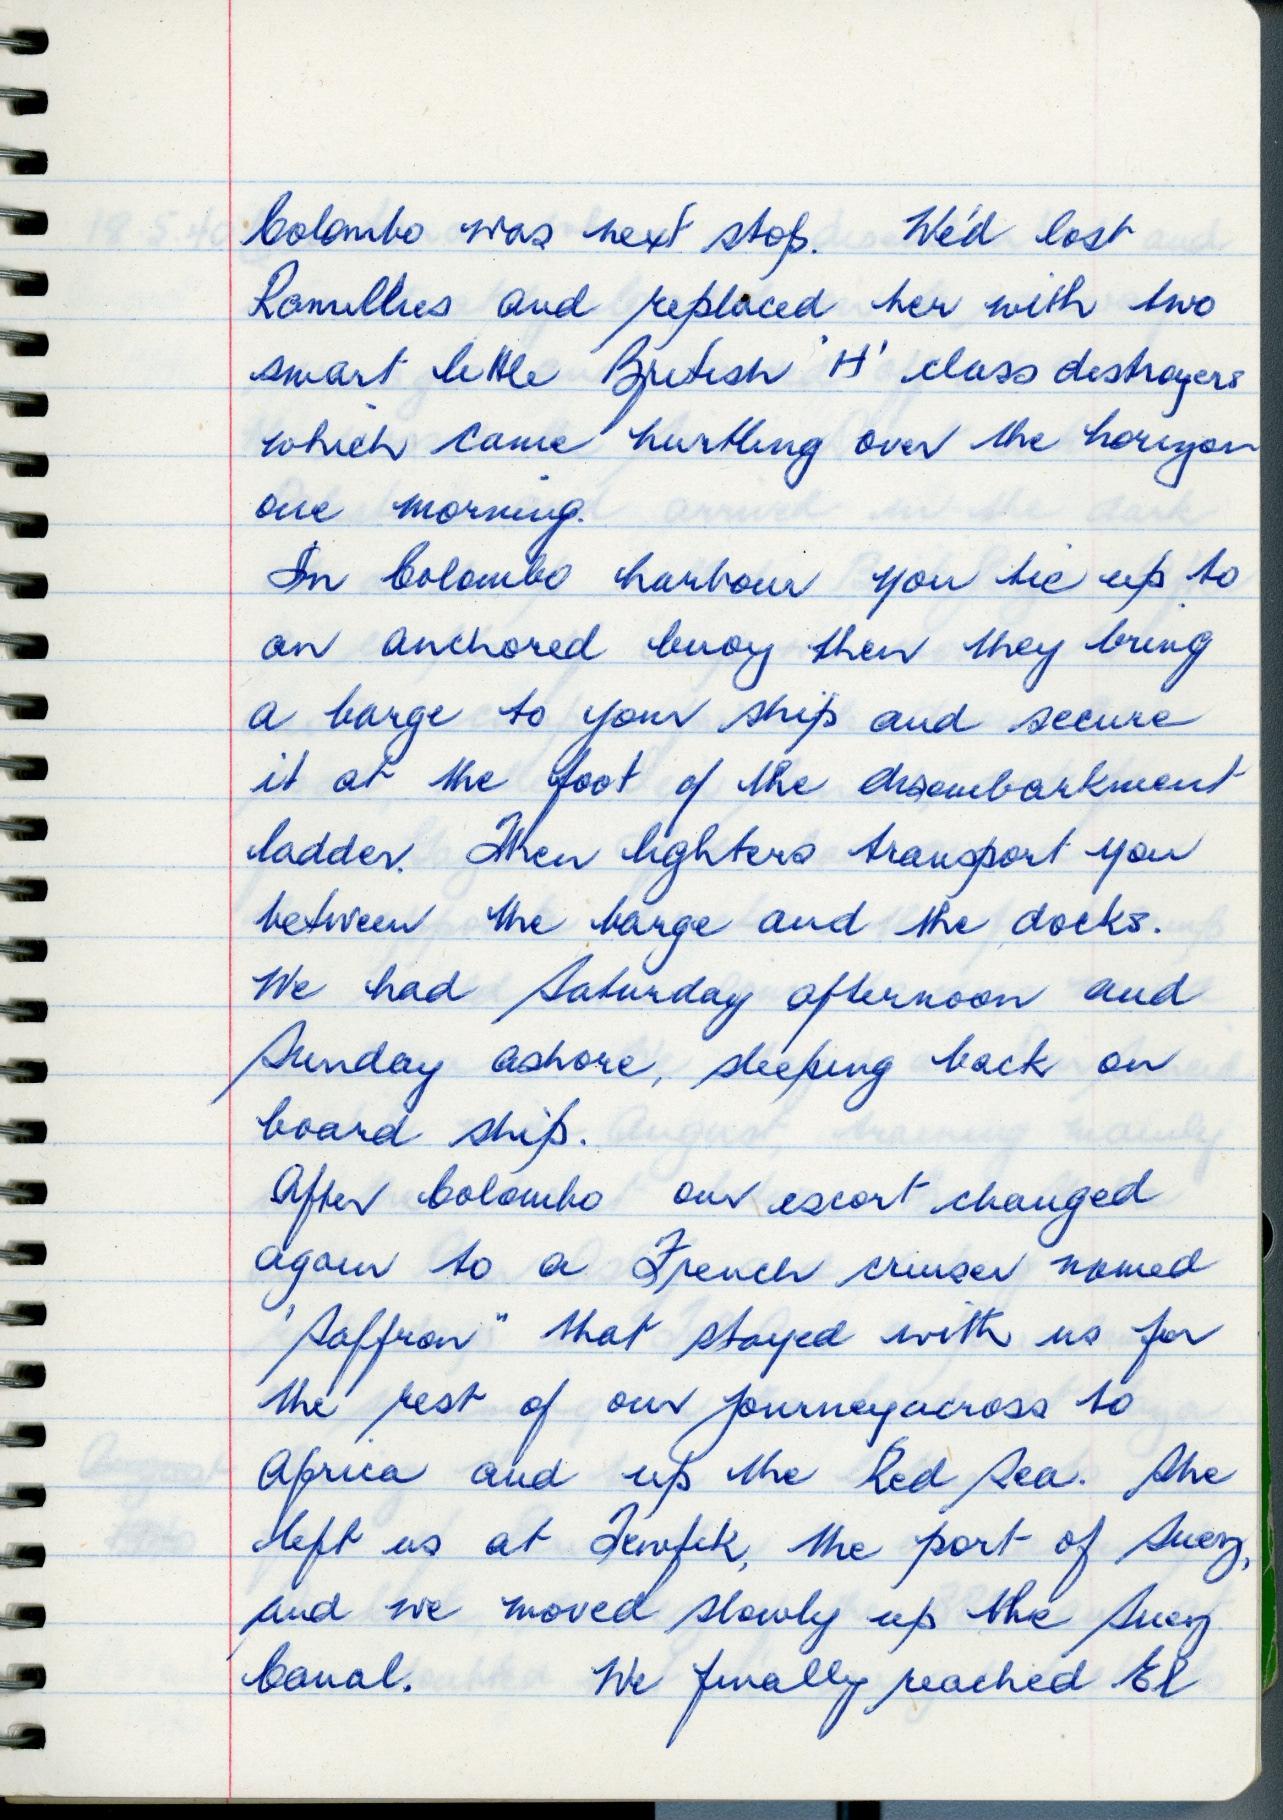 Colombo was next stop. We'd lost
Ramillies and replaced her with two
smart little British 'H' class destroyers
which came hurtling over the horizon
one morning.
In Colombo harbour you tie up to
an anchored buoy then they bring
a barge to your ship and secure
it at the foot of the disembarkment
ladder. Then lighters transport you
between the barge and the docks.
We had Saturday afternoon and
Sunday ashore, sleeping back on
board ship.
After Colombo our escort changed
again to a French cruiser named
'Saffron" that stayed with us for
the rest of our journey across to
Africa and up the Red Sea. She
left us at Tewfik, the port of Suez,
and we moved slowly up the Suez
Canal. We finally reached El